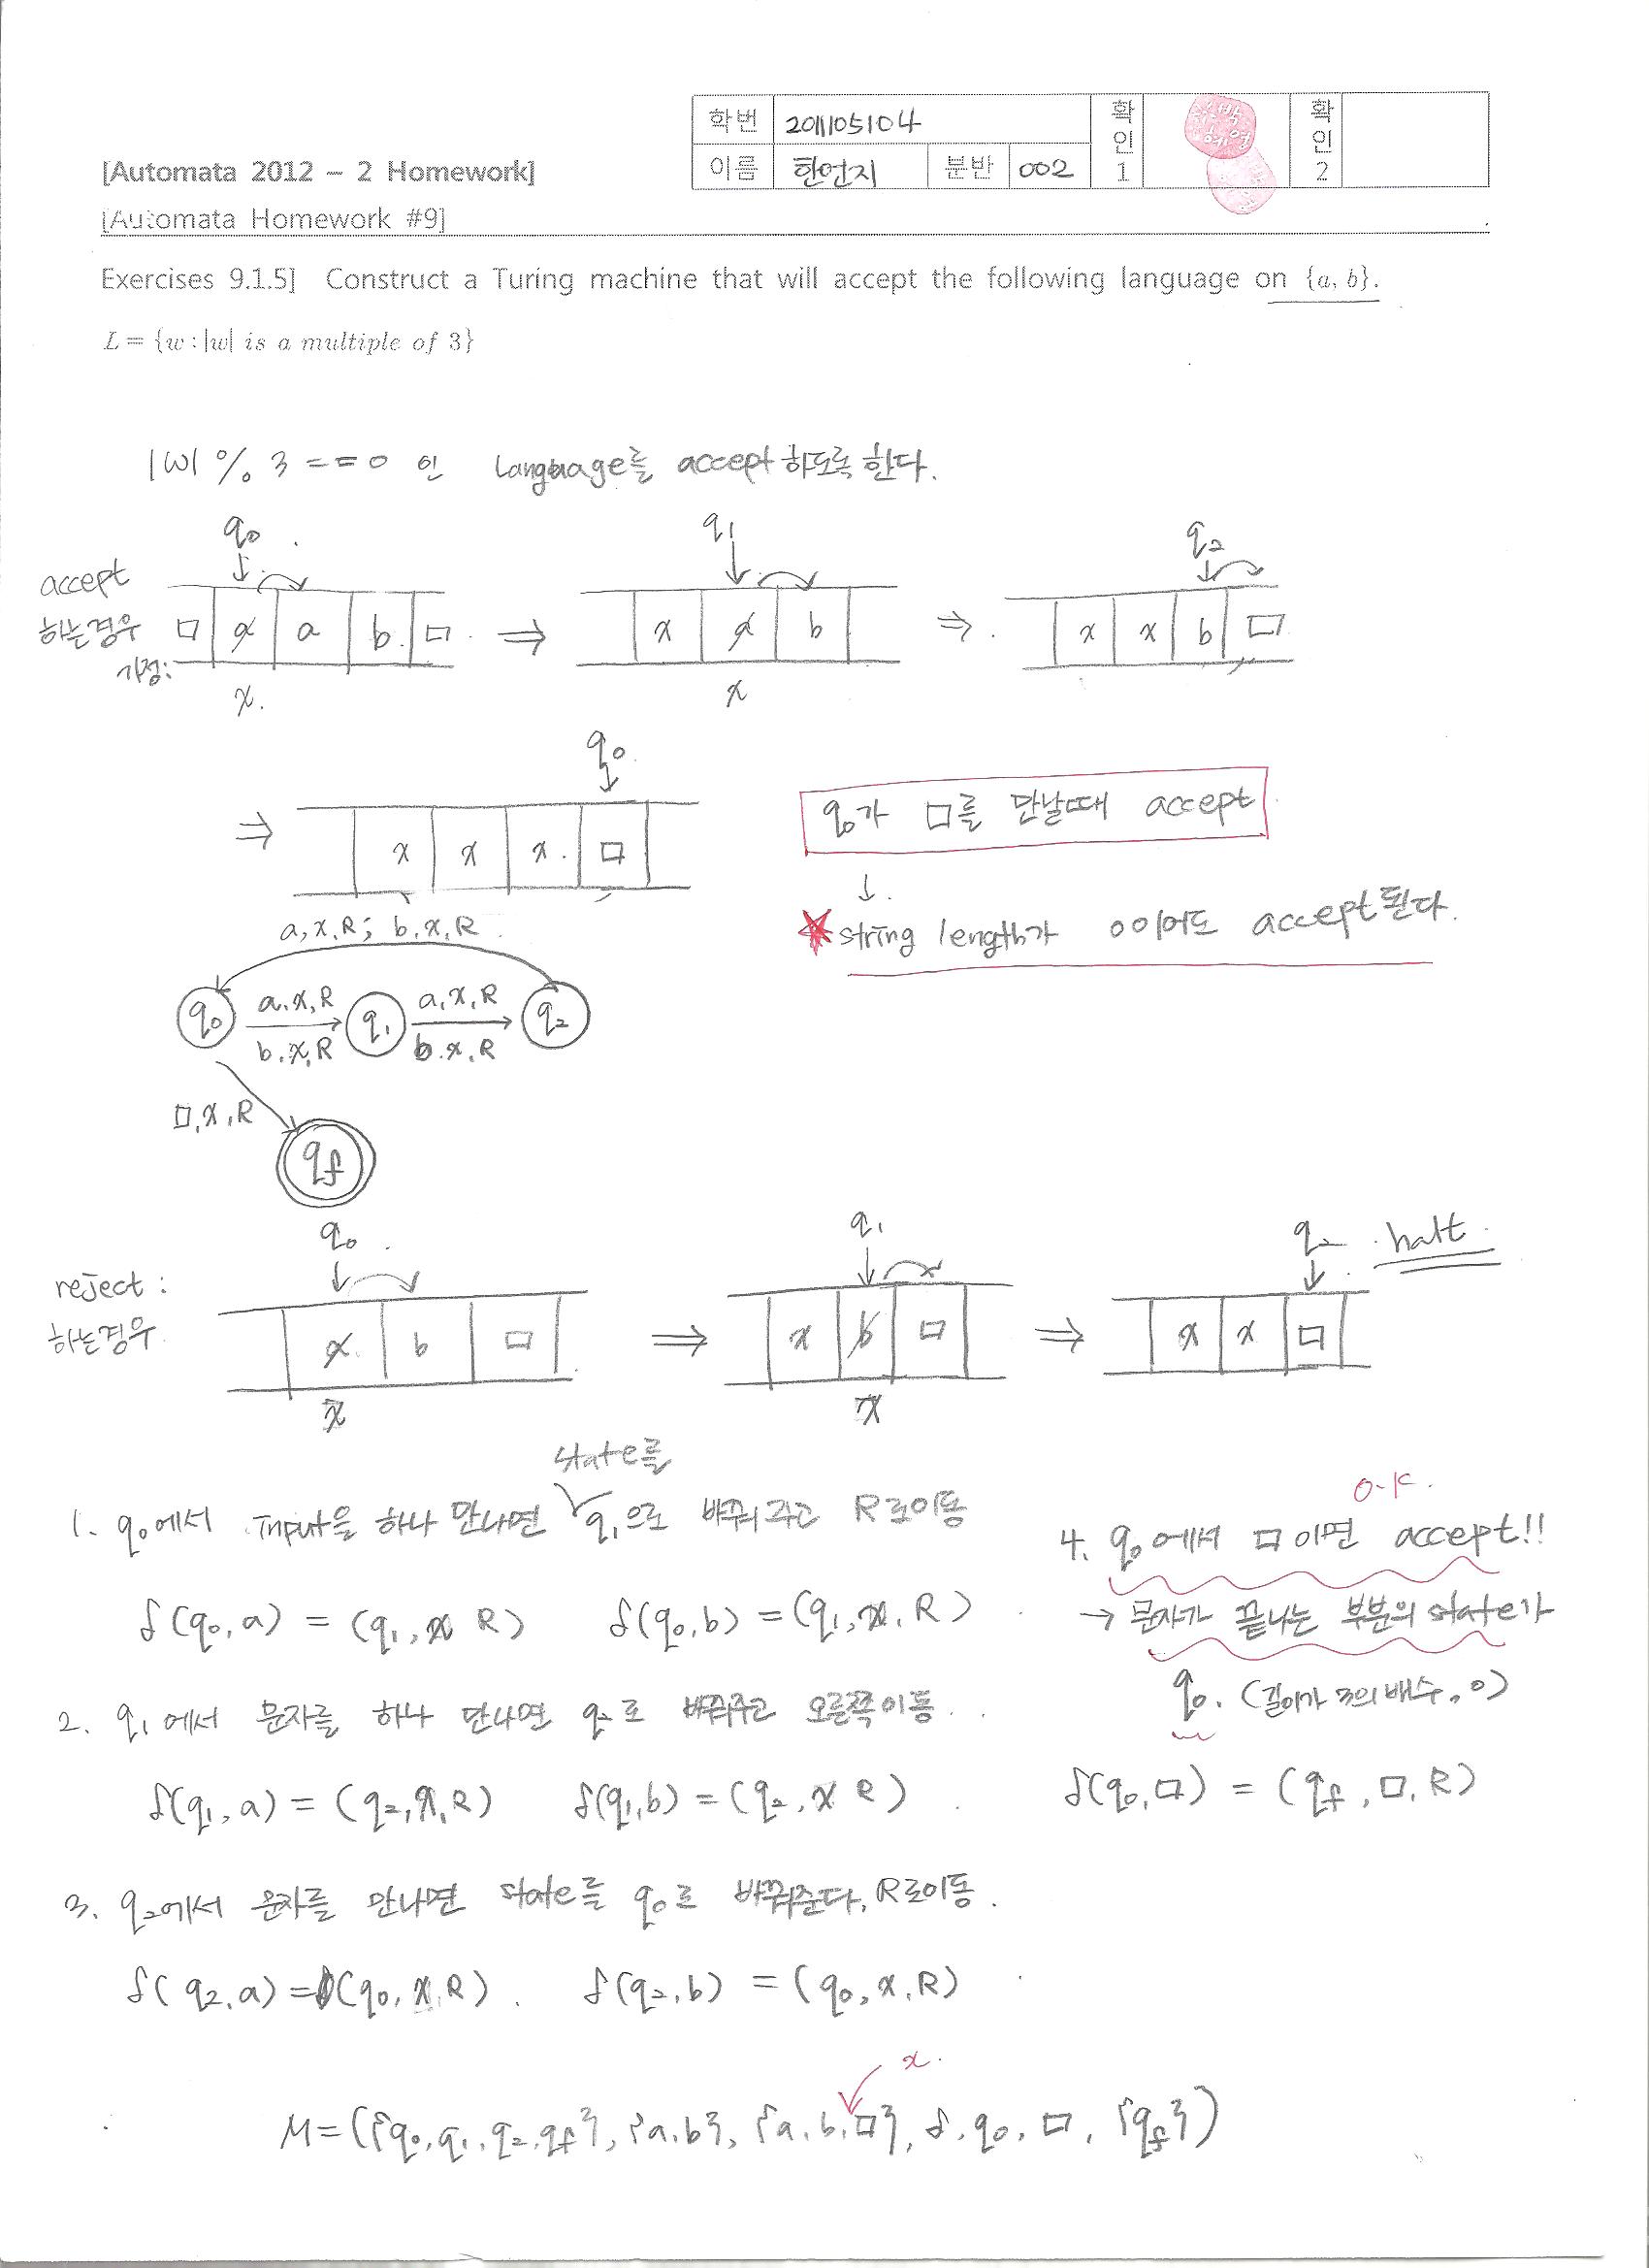 학번 201105104 확인1 확인2
이름 한언지 분반 002
[Automata 2012 – 2 Homework]
[Automata Homework #9]
Exercises 9.1.5] Construct a Turing machine that will accept the following language on {a, b}.
L = {w : |w| is a multiple of 3}
|w| % 3 == 0 인 language를 accept 하도록 한다.
q0 q1 q2
accept
하는경우
가정:
□ a a b □ ⇒ x a b ⇒ x x b □
x. x
q0
⇒ x x x □
q0가 □를 만날때 accept
↓
★ string length가 0이어도 accept된다.
a,x,R; b,x,R
q0 a,x,R q1 a,x,R q2
b,x,R b,x,R
□,x,R
qf
q0 q1 q2 halt
reject:
하는경우
a b □ ⇒ x b □ ⇒ x x □
x x
state를
1. q0에서 input을 하나 만나면 q1으로 바꿔주고 R로이동
δ(q0,a) = (q1,x R) δ(q0,b) = (q1,x,R)
2. q1에서 문자를 하나 만나면 q2로 바꿔주고 오른쪽이동
δ(q1,a) = (q2,x,R) δ(q1,b) = (q2,x R)
3. q2에서 문자를 만나면 state를 q0로 바꿔준다, R로이동.
δ(q2,a) = (q0,x,R). δ(q2,b) = (q0,x,R)
O.K.
4. q0에서 □이면 accept!!
→ 문자가 끝나는 부분의 state가
q0. (길이가 3의배수, 0)
δ(q0,□) = (qf,□,R)
x.
M = ({q0,q1,q2,qf}, {a,b}, {a,b,□}, δ, q0, □, {qf})